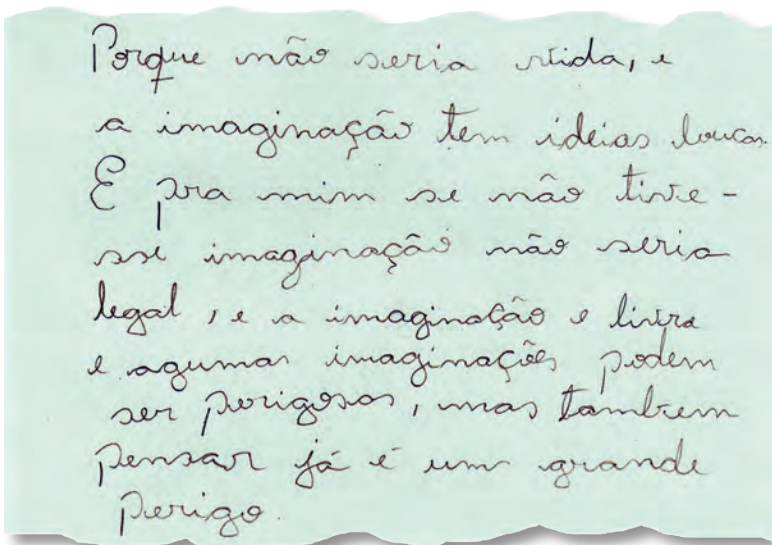 Porque não seria vida, e
a imaginação tem ideias loucas.
E pra mim se não tive-
sse imaginação não seria
legal, e a imaginação e livre
e agumas imaginações podem
ser perigosas, mas tambem
pensar já é um grande
perigo.